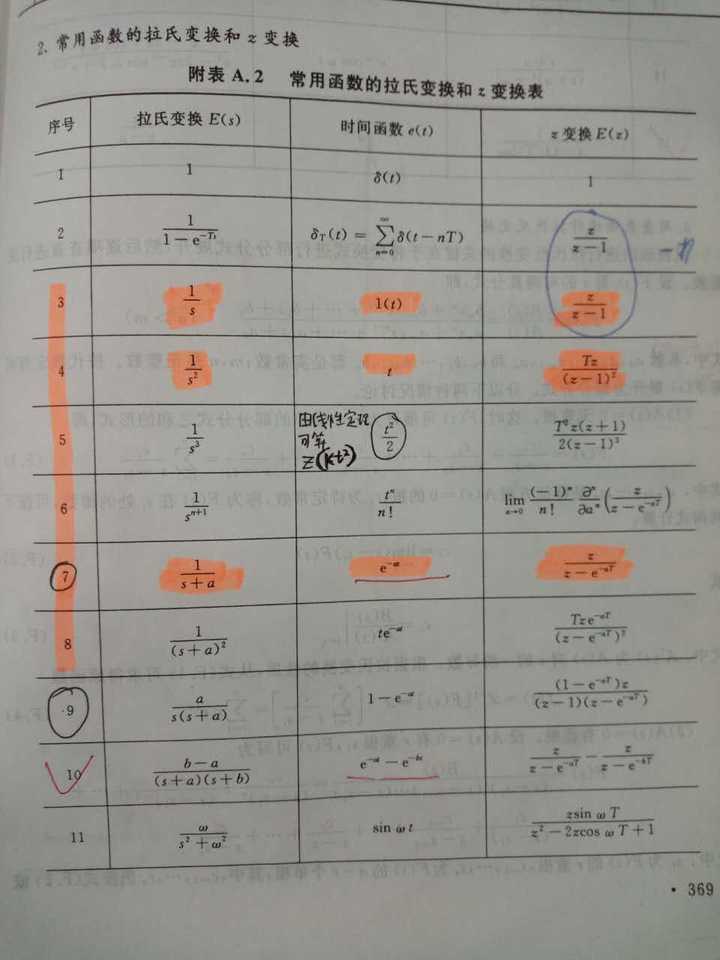 2. 常用函数的拉氏变换和 z 变换
附表 A.2 常用函数的拉氏变换和 z 变换表
序号 拉氏变换 E(s) 时间函数 e(t) z 变换 E(z)
1 1 δ(t) 1
2 1/(1−e^{−Ts}) δ_T(t) = ∑_{n=0}^{∞} δ(t−nT) z/(z−1)
3 1/s 1(t) z/(z−1)
4 1/s² t Tz/(z−1)²
由线性定理
可算
Z(Kt²)
5 1/s³ t²/2 T²z(z+1)/2(z−1)³
6 1/s^{n+1} tⁿ/n! lim_{a→0} (−1)ⁿ/n! ∂ⁿ/∂aⁿ (z/(z−e^{−aT}))
7 1/(s+a) e^{−at} z/(z−e^{−aT})
8 1/(s+a)² te^{−at} Tze^{−aT}/(z−e^{−aT})²
9 a/s(s+a) 1−e^{−at} (1−e^{−aT})z/(z−1)(z−e^{−aT})
10 (b−a)/(s+a)(s+b) e^{−at}−e^{−bt} z/(z−e^{−aT}) − z/(z−e^{−bT})
11 ω/(s²+ω²) sin ωt zsin ωT/(z²−2zcos ωT+1)
· 369